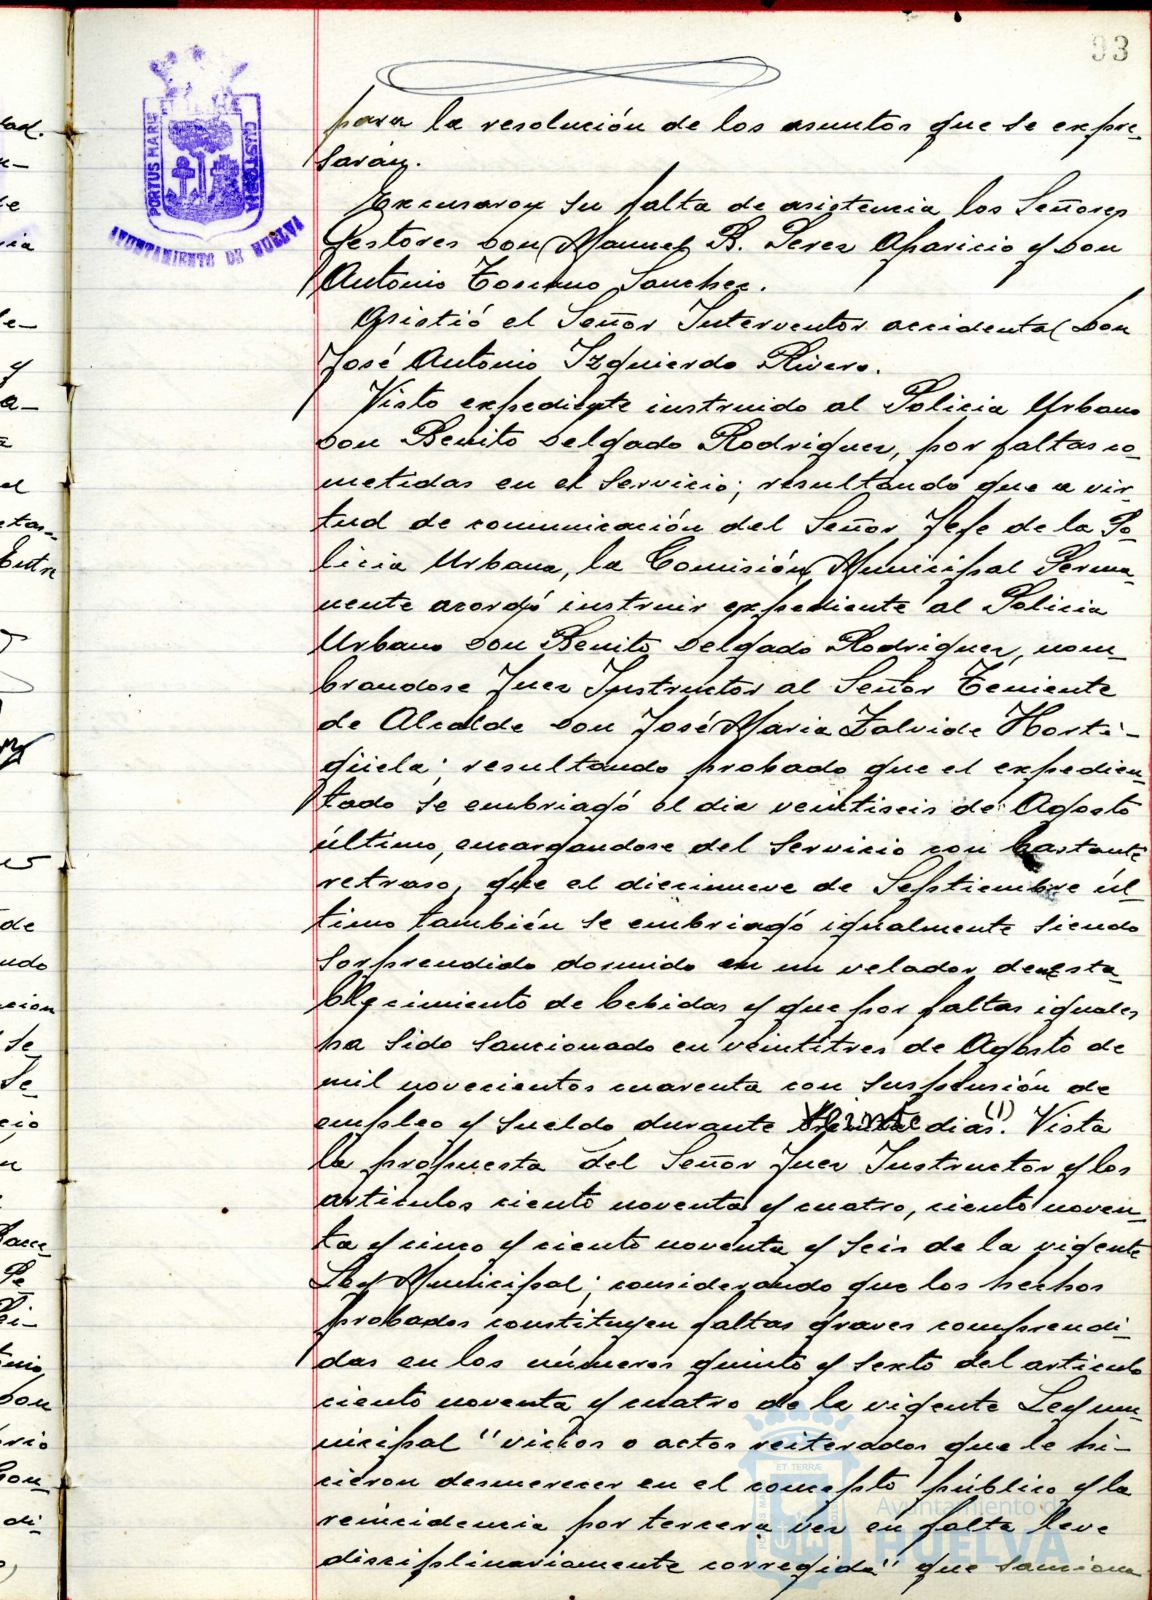 93
PORTUS MARIS
CUSTODIA
AYUNTAMIENTO DE HUELVA
para la resolución de los asuntos que se expre-
sarán.
Excusaron su falta de asistencia los Señores
Gestores Don Manuel B. Perez Aparicio y Don
Antonio Toscano Sanchez.
Asistió el Señor Interventor accidental Don
José Antonio Izquierdo Rivero.
Visto expediente instruido al Policia Urbano
Don Benito Delgado Rodriguez, por faltas co-
metidas en el Servicio; resultando que a vir-
tud de comunicación del Señor Jefe de la Po-
licia Urbana, la Comisión Municipal Perma-
nente acordó instruir expediente al Policia
Urbano Don Benito Delgado Rodriguez, nom-
brandose Juez Instructor al Señor Teniente
de Alcalde Don José Maria Zalvide Horti-
güela; resultando probado que el expedien-
tado se embriagó el dia veintiseis de Agosto
último, encargandose del Servicio con bastante
retraso, que el diecinueve de Septiembre úl-
timo también se embriagó igualmente siendo
sorprendido dormido en un velador de esta-
blecimiento de bebidas y que por faltas iguales
ha sido sancionado en veintitres de Agosto de
mil novecientos cuarenta con suspensión de
empleo y sueldo durante dias (1). Vista
la propuesta del Señor Juez Instructor y los
articulos ciento noventa y cuatro, ciento noven-
ta y cinco y ciento noventa y seis de la vigente
Ley Municipal; considerando que los hechos
probados constituyen faltas graves comprendi-
das en los números quinto y sexto del articulo
ciento noventa y cuatro de la vigente Ley mu-
nicipal "vicios o actos reiterados que le hi-
cieron desmerecer en el concepto público y la
reincidencia por tercera vez en falta leve
disciplinariamente corregida" que sanciona
Ayuntamiento de
HUELVA